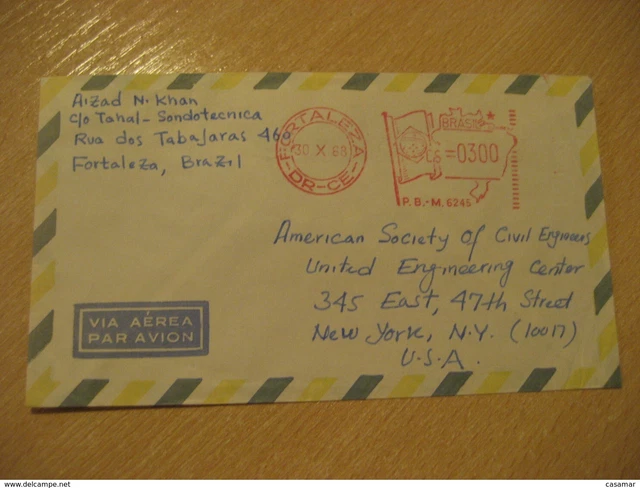 Aizad N. Khan
c/o Tahal-Sondotecnica
Rua dos Tabajaras 460
Fortaleza, Brazil
FORTALEZA
30 X 68
DR-CE
BRASIL
=0300
P.B.-M. 6245
American Society of Civil Engineers
United Engineering Center
345 East, 47th Street
New York, N.Y. (10017)
U.S.A.
VIA AÉREA
PAR AVION
delcampe.net
casamar